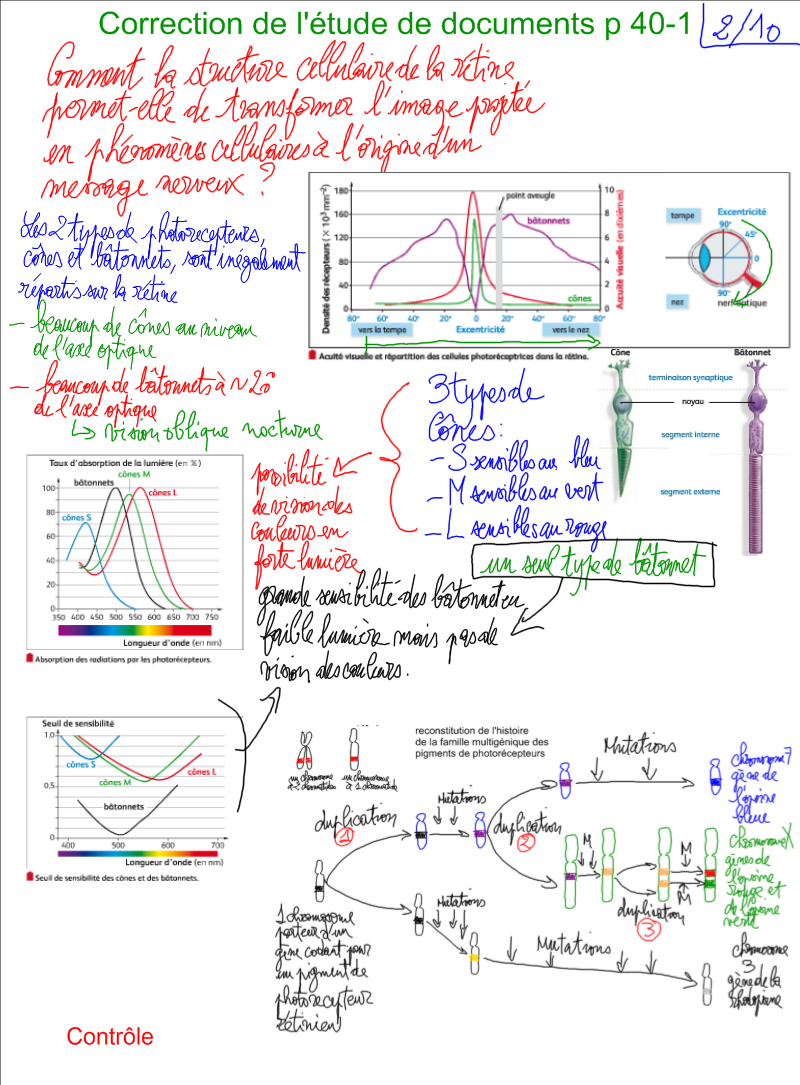 Correction de l'étude de documents p 40-1
2/10
Comment la structure cellulaire de la rétine
permet-elle de transformer l'image projetée
en phénomènes cellulaires à l'origine d'un
message nerveux ?
Les 2 types de photorécepteurs,
cônes et bâtonnets, sont inégalement
répartis sur la rétine
- beaucoup de cônes au niveau
de l'axe optique
- beaucoup de bâtonnets à ~ 20°
de l'axe optique
↳ vision oblique nocturne
Densité des récepteurs (× 10³ mm⁻²)
180
160
120
80
40
0
point aveugle
bâtonnets
cônes
10
8
6
4
2
0
Acuité visuelle (en dixièmes)
80° 60° 40° 20° 0° 20° 40° 60° 80°
vers la tempe
Excentricité
vers le nez
Acuité visuelle et répartition des cellules photoréceptrices dans la rétine.
tempe
Excentricité
90°
45°
0
90°
nez
nerf optique
Cône
Bâtonnet
terminaison synaptique
noyau
segment interne
segment externe
3 types de
Cônes :
- S sensibles au bleu
- M sensibles au vert
- L sensibles au rouge
un seul type de bâtonnet
possibilité
de vision des
couleurs en
forte lumière
grande sensibilité des bâtonnets en
faible lumière mais pas de
vision des couleurs.
Taux d'absorption de la lumière (en %)
cônes M
bâtonnets
cônes L
cônes S
100
80
60
40
20
0
350 400 450 500 550 600 650 700 750
Longueur d'onde (en nm)
Absorption des radiations par les photorécepteurs.
Seuil de sensibilité
1,0
0,5
0
cônes S
cônes L
cônes M
bâtonnets
400 500 600 700
Longueur d'onde (en nm)
Seuil de sensibilité des cônes et des bâtonnets.
reconstitution de l'histoire
de la famille multigénique des
pigments de photorécepteurs
un chromosome
à 2 chromatides
un chromosome
à 1 chromatide
duplication
1
Mutations
duplication
2
Mutations
chromosome 7
gène de
l'opsine
bleue
M
duplication
3
M
M
chromosome X
gènes de
l'opsine
rouge et
de l'opsine
verte
Mutations
Mutations
chromosome
3
gène de la
rhodopsine
1 chromosome
porteur d'un
gène codant pour
un pigment de
photorécepteur
rétinien
Contrôle